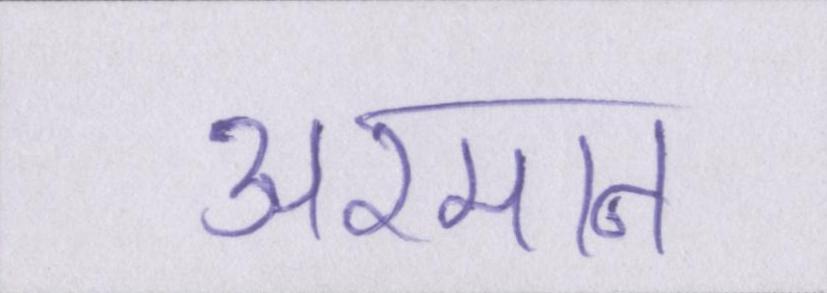 अरमान